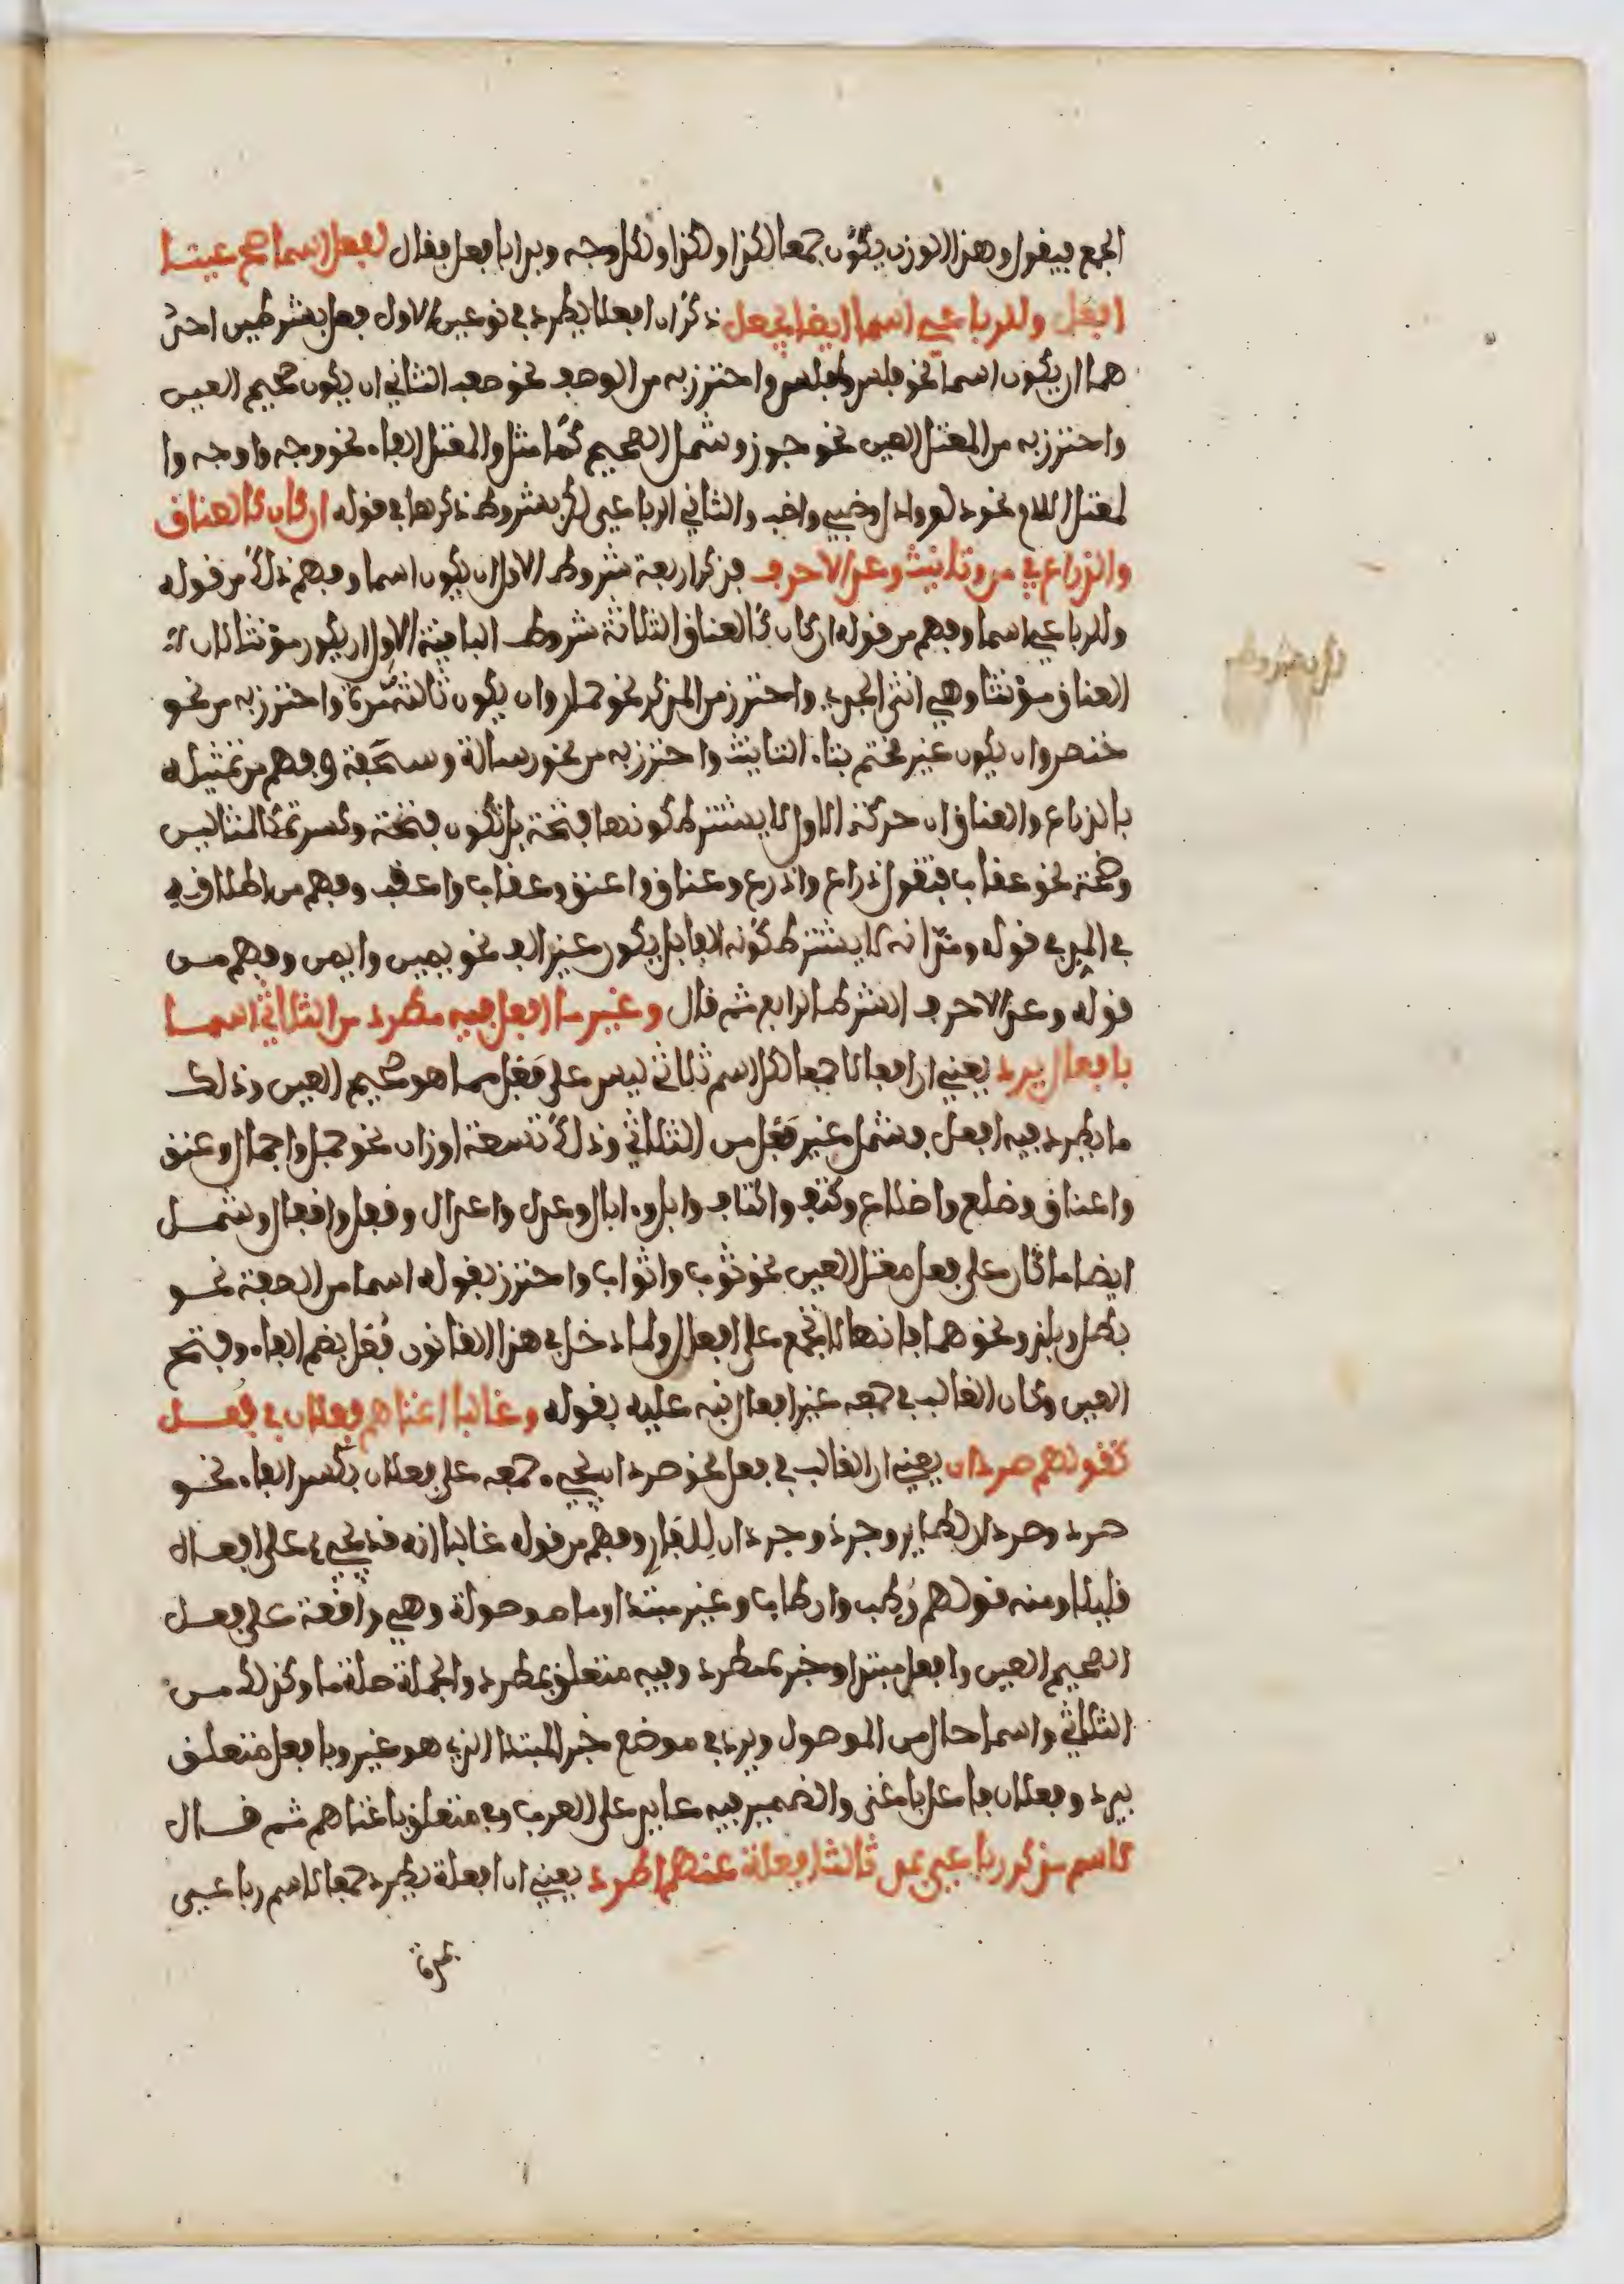 الجمع فيقول وهذا الوزن يكون جمعا لكذا ولكذا ولكل وجه وبدا بافعل فقال لفعل اسما صح عينا
افعل وللرباعي اسما ايضا يجعل ذكر ان افعلا يطرد في نوعين الاول فعل بشرطين احد
هما ان يكون اسما نحو فلس وافلس واحترز به من الوصف نحو صعب الثاني ان يكون صحيح العين
واحترز به من المعتل العين نحو جوز وشمل الصحيح كما مثل والمعتل الفاء نحو وجه واوجه وا
لمعتل اللام نحو دلو وادل وظبي واظب والثاني الرباعي لكن بشروط ذكرها في قوله ان كان كالعناق
والذراع في مد وتانيث وعد الاحرف فذكر اربعة شروط الاول ان يكون اسما وفهم ذلك من قوله
وللرباعي اسما وفهم من قوله ان كان كالعناق الثلاثة شروط الباقية الاول ان يكون مؤنثا لان
العناق مؤنثا وهي انثى الجدي واحترز من المذكر نحو حمار وان يكون ثالثه مدة واحترز به من نحو
خنصر وان يكون غير مختم بتاء التانيث واحترز به من نحو رسالة وسحفة وفهم من تمثيله
بالذراع والعناق ان حركة الاول لا يشترط كونها فتحة بل تكون فتحة وكسرة كالمثالين
وضمة نحو عقاب فتقول ذراع واذرع وعناق واعنق وعقاب واعقب وفهم من اطلاقه
في المد في قوله ومد انه لا يشترط كونه الفا بل يكون غير الف نحو يمين وايمن وفهم من
قوله وعد الاحرف الشرط الرابع ثم قال وغير ما افعل فيه مطرد من الثلاثي اسما
بافعال يرد يعني ان افعالا جمعا لكل اسم ثلاثي ليس على فعل مما هو صحيح العين وذلك
ما يطرد فيه افعل فشمل غير فعل من الثلاثي وذلك تسعة اوزان نحو جمل واجمال وعنق
واعناق وضلع واضلاع وكتف واكتاف وابل وءابال وعدل واعدال وقفل واقفال وشمل
ايضا ما كان على فعل معتل العين نحو ثوب واثواب واحترز بقوله اسما من الصفة نحو
بطل وبلز ونحوهما فانها لا تجمع على افعال ولما دخل في هذا القانون فعل بضم الفاء وفتح
العين وكان الغالب في جمعه غير افعال نبه عليه بقوله وغالبا اغناهم فعلان في فعل
كقولهم صردان يعني ان الغالب في فعل نحو صرد ان يجيء جمعه على فعلان بكسر الفاء نحو
صرد وصردان لطاير وجرذ وجرذان للفار وفهم من قوله غالبا انه قد يجيء على افعال
قليلا ومنه قولهم رطب وارطاب وغير مبتدا وما موصولة وهي واقعة على فعل
الصحيح العين وافعل مبتدا وخبره مطرد وفيه متعلق بمطرد والجملة صلة ما وكذلك من
الثلاثي واسما حال من الموصول ويرد في موضع خبر المبتدا الذي هو غير وبافعل متعلق
بيرد وفعلان فاعل باغنى والضمير فيه عايد على العرب وفي متعلق باغناهم ثم قال
لاسم مذكر رباعي بمد ثالث افعلة عنهم اطرد يعني ان افعلة يطرد جمعا لاسم رباعي
لكن بشروط